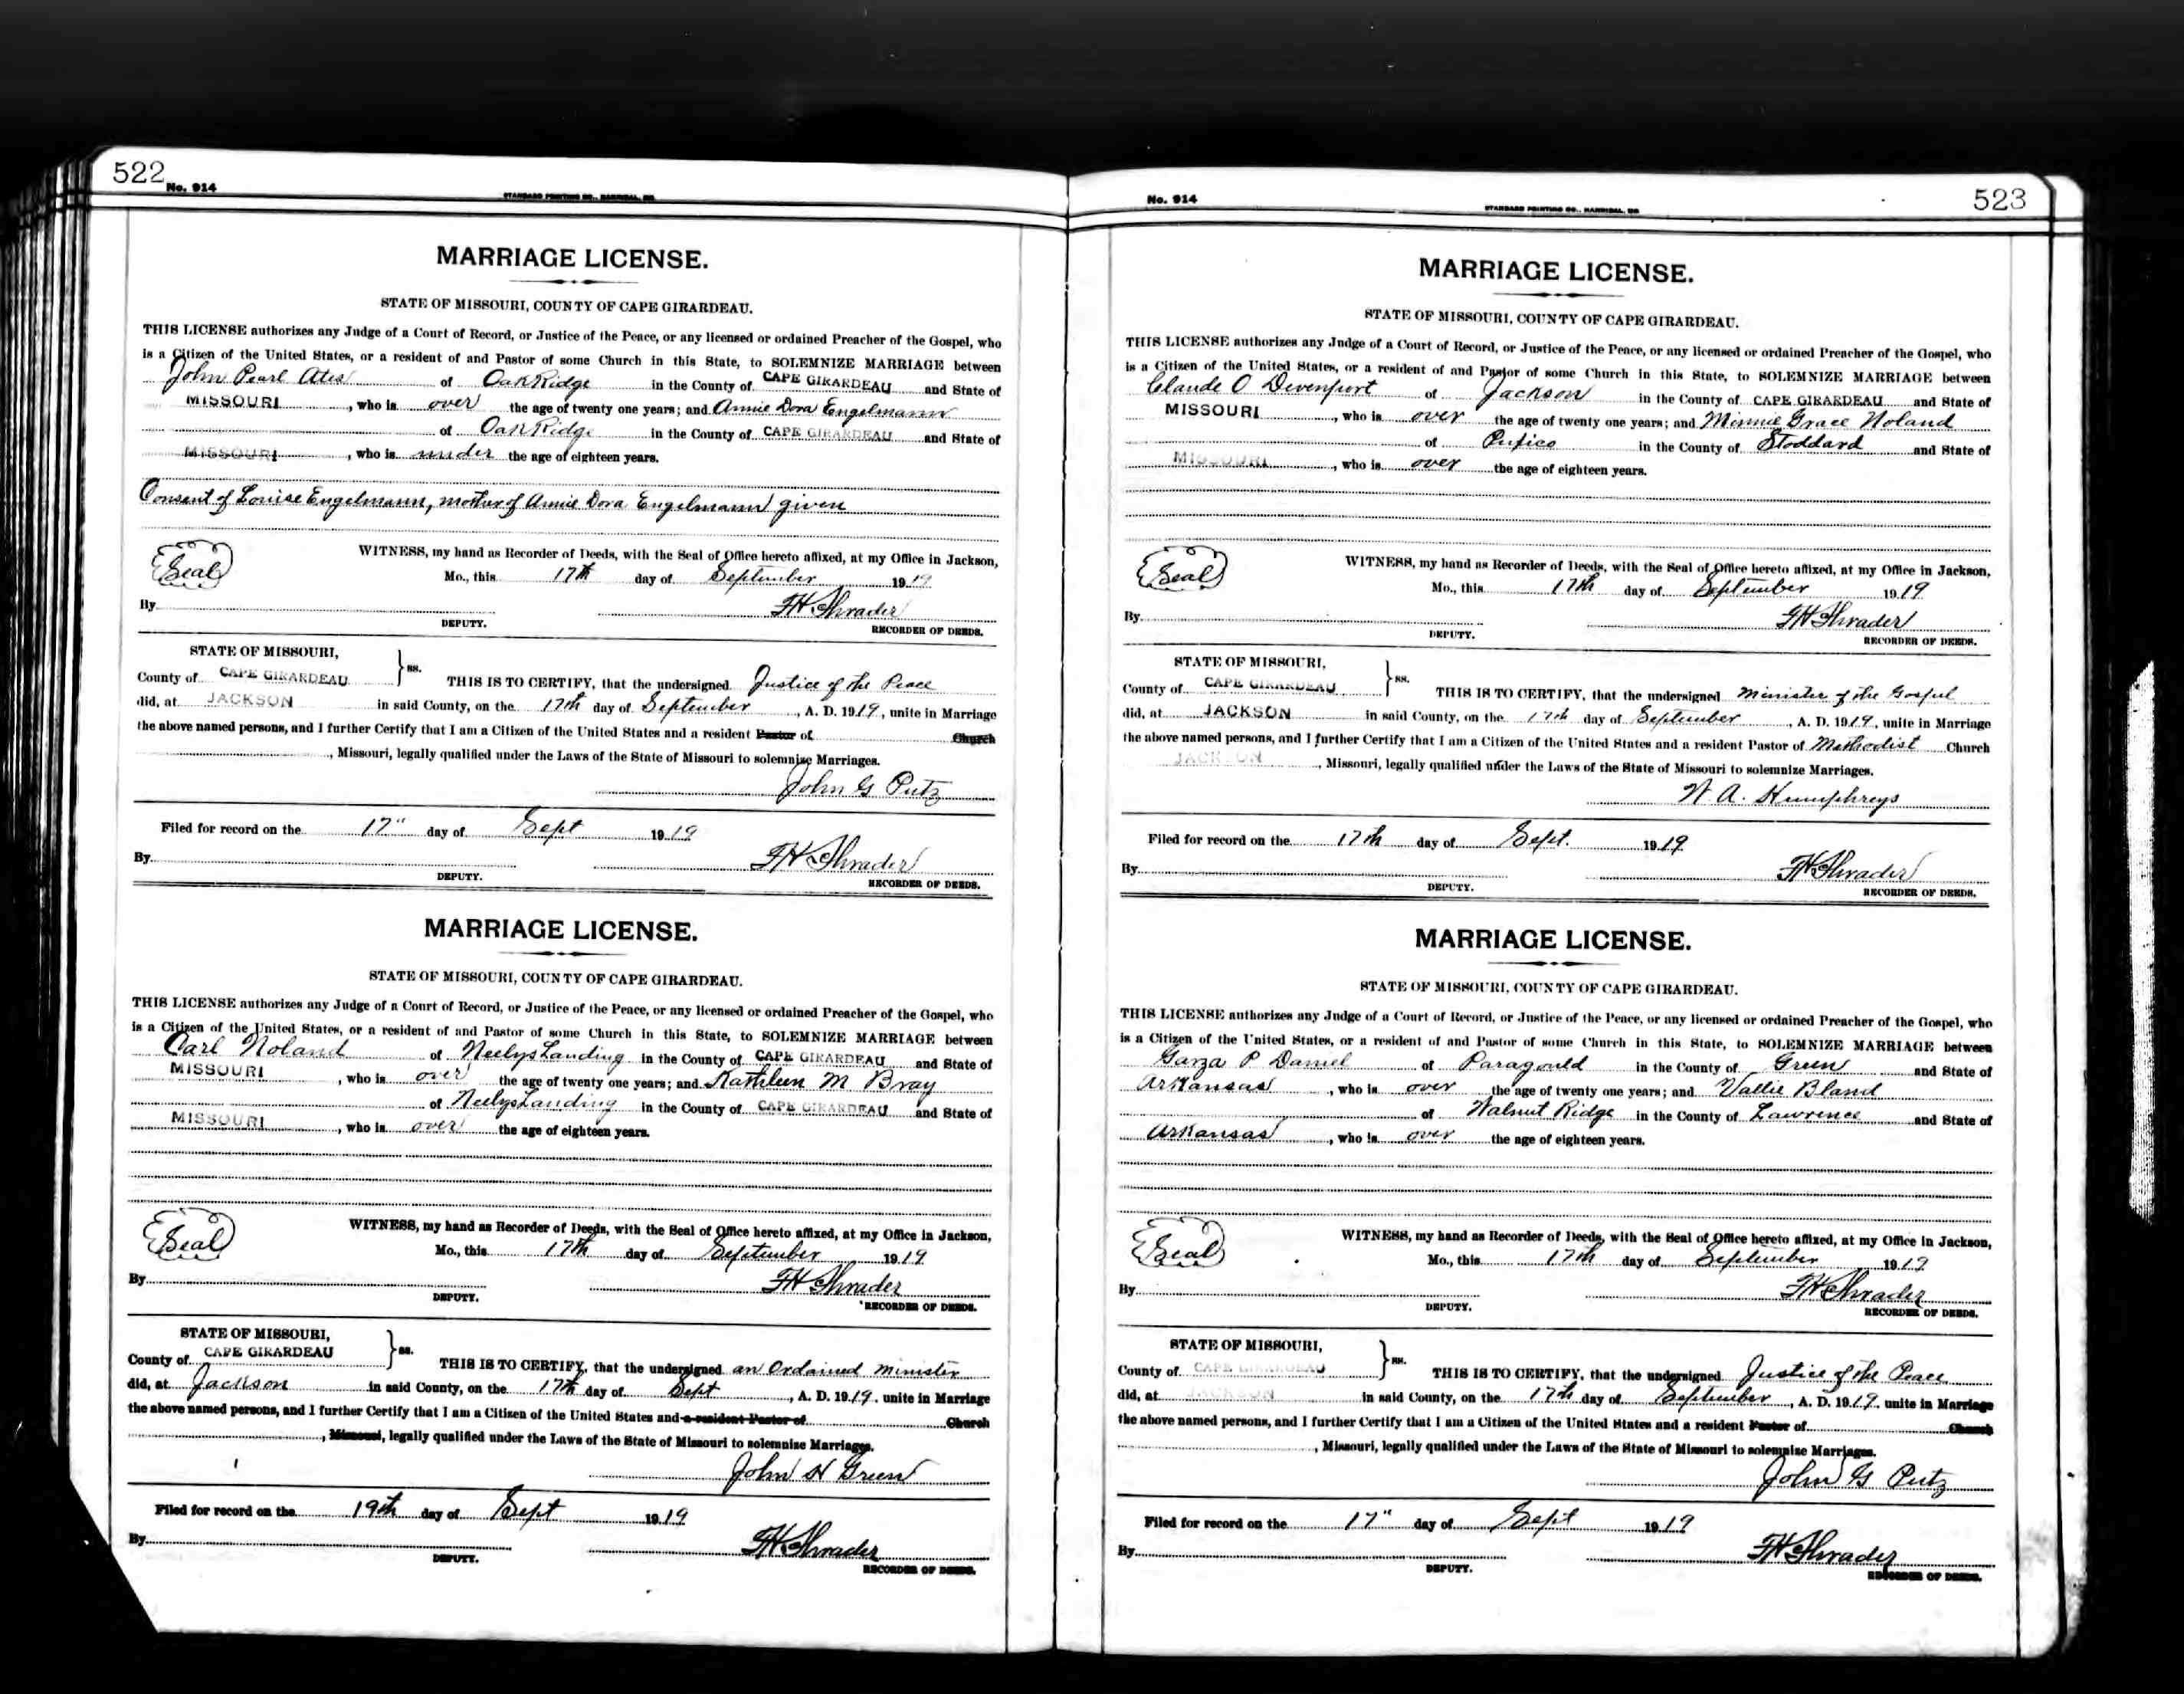 522
No. 914
STANDARD PRINTING CO., HANNIBAL, MO.
MARRIAGE LICENSE.
STATE OF MISSOURI, COUNTY OF CAPE GIRARDEAU.
THIS LICENSE authorizes any Judge of a Court of Record, or Justice of the Peace, or any licensed or ordained Preacher of the Gospel, who
is a Citizen of the United States, or a resident of and Pastor of some Church in this State, to SOLEMNIZE MARRIAGE between
John Pearl Ates of Oak Ridge in the County of CAPE GIRARDEAU and State of
MISSOURI, who is over the age of twenty one years; and Annie Dora Engelmann
of Oak Ridge in the County of CAPE GIRARDEAU and State of
MISSOURI, who is under the age of eighteen years.
Consent of Louise Engelmann, mother of Annie Dora Engelmann given
Seal
WITNESS, my hand as Recorder of Deeds, with the Seal of Office hereto affixed, at my Office in Jackson,
Mo., this 17th day of September 1919
By FH Shrader
DEPUTY. RECORDER OF DEEDS.
STATE OF MISSOURI,
County of CAPE GIRARDEAU } ss. THIS IS TO CERTIFY, that the undersigned Justice of the Peace
did, at JACKSON in said County, on the 17th day of September, A. D. 1919, unite in Marriage
the above named persons, and I further Certify that I am a Citizen of the United States and a resident Pastor of Church
, Missouri, legally qualified under the Laws of the State of Missouri to solemnize Marriages.
John G Putz
Filed for record on the 17" day of Sept 1919
By FH Shrader
DEPUTY. RECORDER OF DEEDS.
MARRIAGE LICENSE.
STATE OF MISSOURI, COUNTY OF CAPE GIRARDEAU.
THIS LICENSE authorizes any Judge of a Court of Record, or Justice of the Peace, or any licensed or ordained Preacher of the Gospel, who
is a Citizen of the United States, or a resident of and Pastor of some Church in this State, to SOLEMNIZE MARRIAGE between
Carl Noland of Neelys Landing in the County of CAPE GIRARDEAU and State of
MISSOURI, who is over the age of twenty one years; and Kathleen M Bray
of Neelys Landing in the County of CAPE GIRARDEAU and State of
MISSOURI, who is over the age of eighteen years.
Seal
WITNESS, my hand as Recorder of Deeds, with the Seal of Office hereto affixed, at my Office in Jackson,
Mo., this 17th day of September 1919
By FH Shrader
DEPUTY. RECORDER OF DEEDS.
STATE OF MISSOURI,
County of CAPE GIRARDEAU } ss. THIS IS TO CERTIFY, that the undersigned an Ordained Minister
did, at Jackson in said County, on the 17th day of Sept, A. D. 1919, unite in Marriage
the above named persons, and I further Certify that I am a Citizen of the United States and a resident Pastor of Church
, Missouri, legally qualified under the Laws of the State of Missouri to solemnize Marriages.
John H Green
Filed for record on the 19th day of Sept 1919
By FH Shrader
DEPUTY. RECORDER OF DEEDS.
No. 914
STANDARD PRINTING CO., HANNIBAL, MO
523
MARRIAGE LICENSE.
STATE OF MISSOURI, COUNTY OF CAPE GIRARDEAU.
THIS LICENSE authorizes any Judge of a Court of Record, or Justice of the Peace, or any licensed or ordained Preacher of the Gospel, who
is a Citizen of the United States, or a resident of and Pastor of some Church in this State, to SOLEMNIZE MARRIAGE between
Claude O Devenport of Jackson in the County of CAPE GIRARDEAU and State of
MISSOURI, who is over the age of twenty one years; and Minnie Grace Noland
of Puxico in the County of Stoddard and State of
MISSOURI, who is over the age of eighteen years.
Seal
WITNESS, my hand as Recorder of Deeds, with the Seal of Office hereto affixed, at my Office in Jackson,
Mo., this 17th day of September 1919
By FH Shrader
DEPUTY. RECORDER OF DEEDS.
STATE OF MISSOURI,
County of CAPE GIRARDEAU } ss. THIS IS TO CERTIFY, that the undersigned Minister of the Gospel
did, at JACKSON in said County, on the 17th day of September, A. D. 1919, unite in Marriage
the above named persons, and I further Certify that I am a Citizen of the United States and a resident Pastor of Methodist Church
JACKSON, Missouri, legally qualified under the Laws of the State of Missouri to solemnize Marriages.
W A. Humphreys
Filed for record on the 17th day of Sept. 1919
By FH Shrader
DEPUTY. RECORDER OF DEEDS.
MARRIAGE LICENSE.
STATE OF MISSOURI, COUNTY OF CAPE GIRARDEAU.
THIS LICENSE authorizes any Judge of a Court of Record, or Justice of the Peace, or any licensed or ordained Preacher of the Gospel, who
is a Citizen of the United States, or a resident of and Pastor of some Church in this State, to SOLEMNIZE MARRIAGE between
Garza P Daniel of Paragould in the County of Green and State of
Arkansas, who is over the age of twenty one years; and Vallie Bland
of Walnut Ridge in the County of Lawrence and State of
Arkansas, who is over the age of eighteen years.
Seal
WITNESS, my hand as Recorder of Deeds, with the Seal of Office hereto affixed, at my Office in Jackson,
Mo., this 17th day of September 1919
By FH Shrader
DEPUTY. RECORDER OF DEEDS.
STATE OF MISSOURI,
County of CAPE GIRARDEAU } ss. THIS IS TO CERTIFY, that the undersigned Justice of the Peace
did, at JACKSON in said County, on the 17th day of September, A. D. 1919, unite in Marriage
the above named persons, and I further Certify that I am a Citizen of the United States and a resident Pastor of Church
, Missouri, legally qualified under the Laws of the State of Missouri to solemnize Marriages.
John G Putz
Filed for record on the 17" day of Sept 1919
By FH Shrader
DEPUTY. RECORDER OF DEEDS.